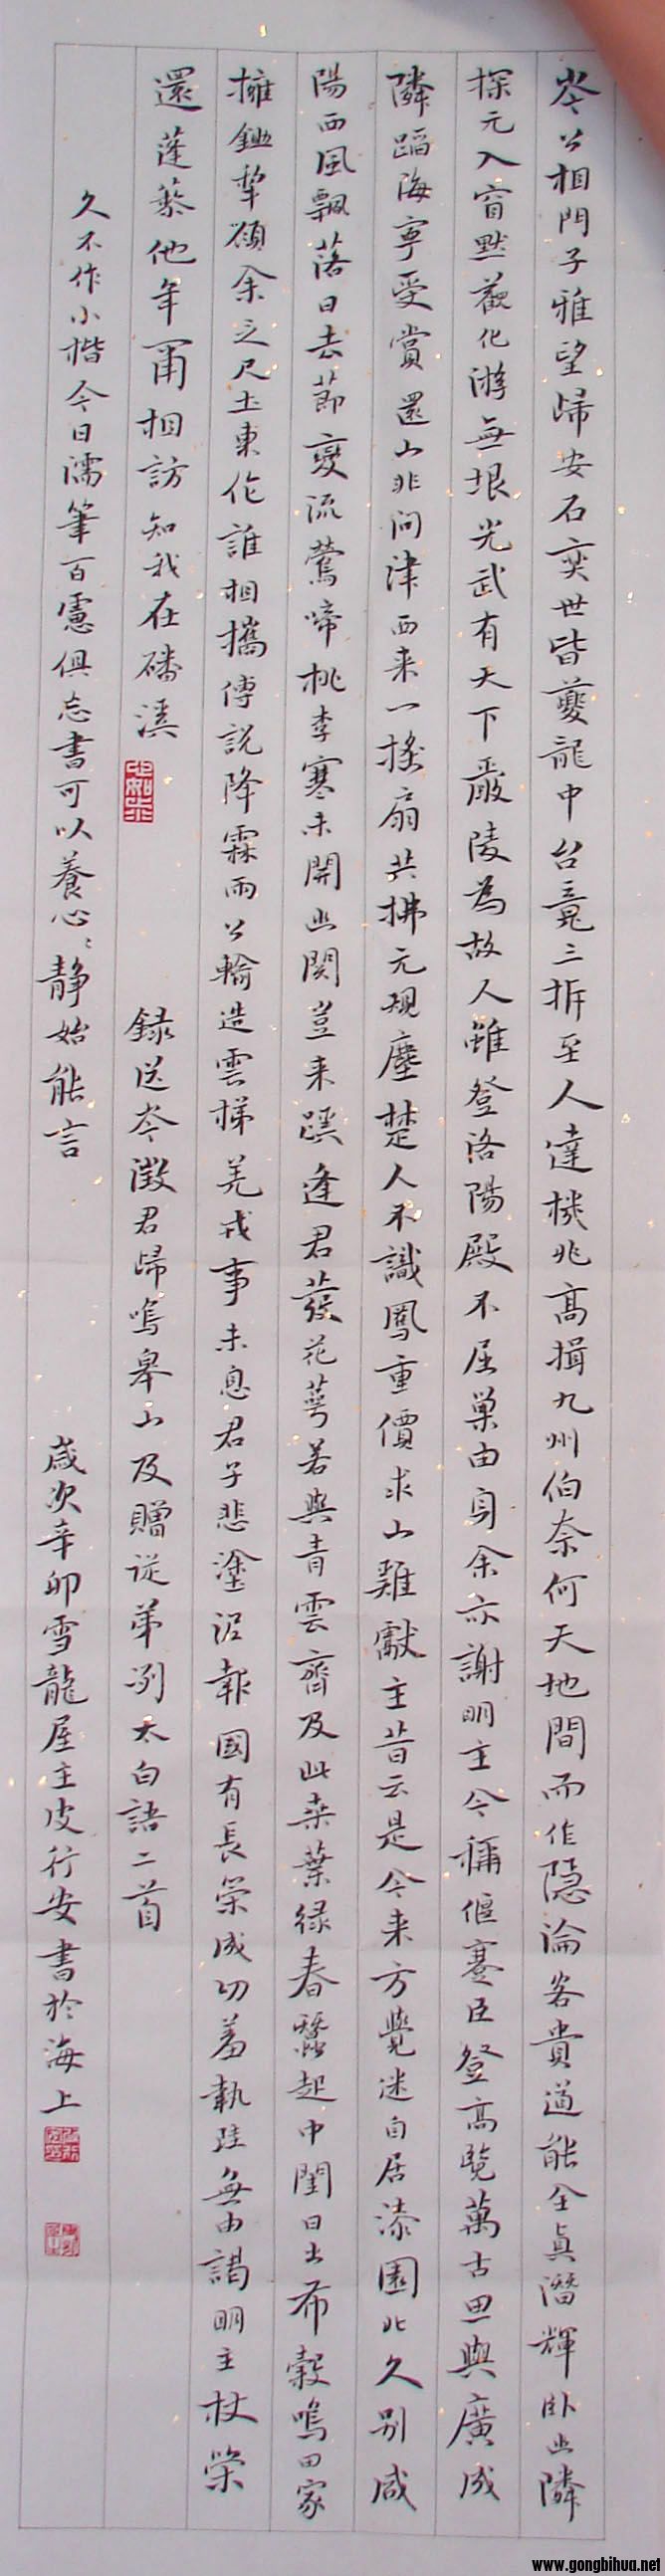 岑公相門子雅望歸安石奕世皆夔龍中台竟三拆至人達機兆高揖九州伯奈何天地間而作隱淪客貴道能全真潛輝臥幽隣
探元入窅默觀化游無垠光武有天下嚴陵為故人雖登洛陽殿不屈巢由身余亦謝明主今稱偃蹇臣登高覽萬古思與廣成
隣蹈海寧受賞還山非問津西来一搖扇共拂元規塵楚人不識鳳重價求山雞獻主昔云是今来方覺迷自居漆園北久別咸
陽西風飄落日去節變流鶯啼桃李寒未開幽関豈来蹊逢君發花萼若與青雲齊及此桑葉绿春蠶起中閨日出布穀鳴田家
擁鋤犂顧余乏尺土東作誰相攜傅說降霖雨公輸造雲梯羌戎事未息君子悲塗泥報國有長策成功羞執珪無由謁明主杖策
還蓬藜他年爾相訪知我在磻溪
録送岑徵君歸鳴皋山及贈從弟冽太白詩二首
久不作小楷今日濡筆百慮俱忘書可以養心心静始能言
歲次辛卯雪龍屋主皮行安書於海上
www.gongbihua.net